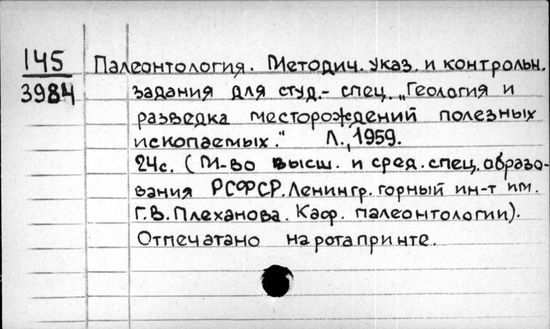 145
3984
Палеонтология. Методич. указ. и контрольн.
задания для студ.- спец. „Геология и
разведка месторождений полезных
ископаемых." Л., 1959.
24с. (М-во высш. и сред. спец. образо-
вания РСФСР. Ленингр. горный ин-т им.
Г.В. Плеханова. Каф. палеонтологии).
Отпечатано на ротапринте.